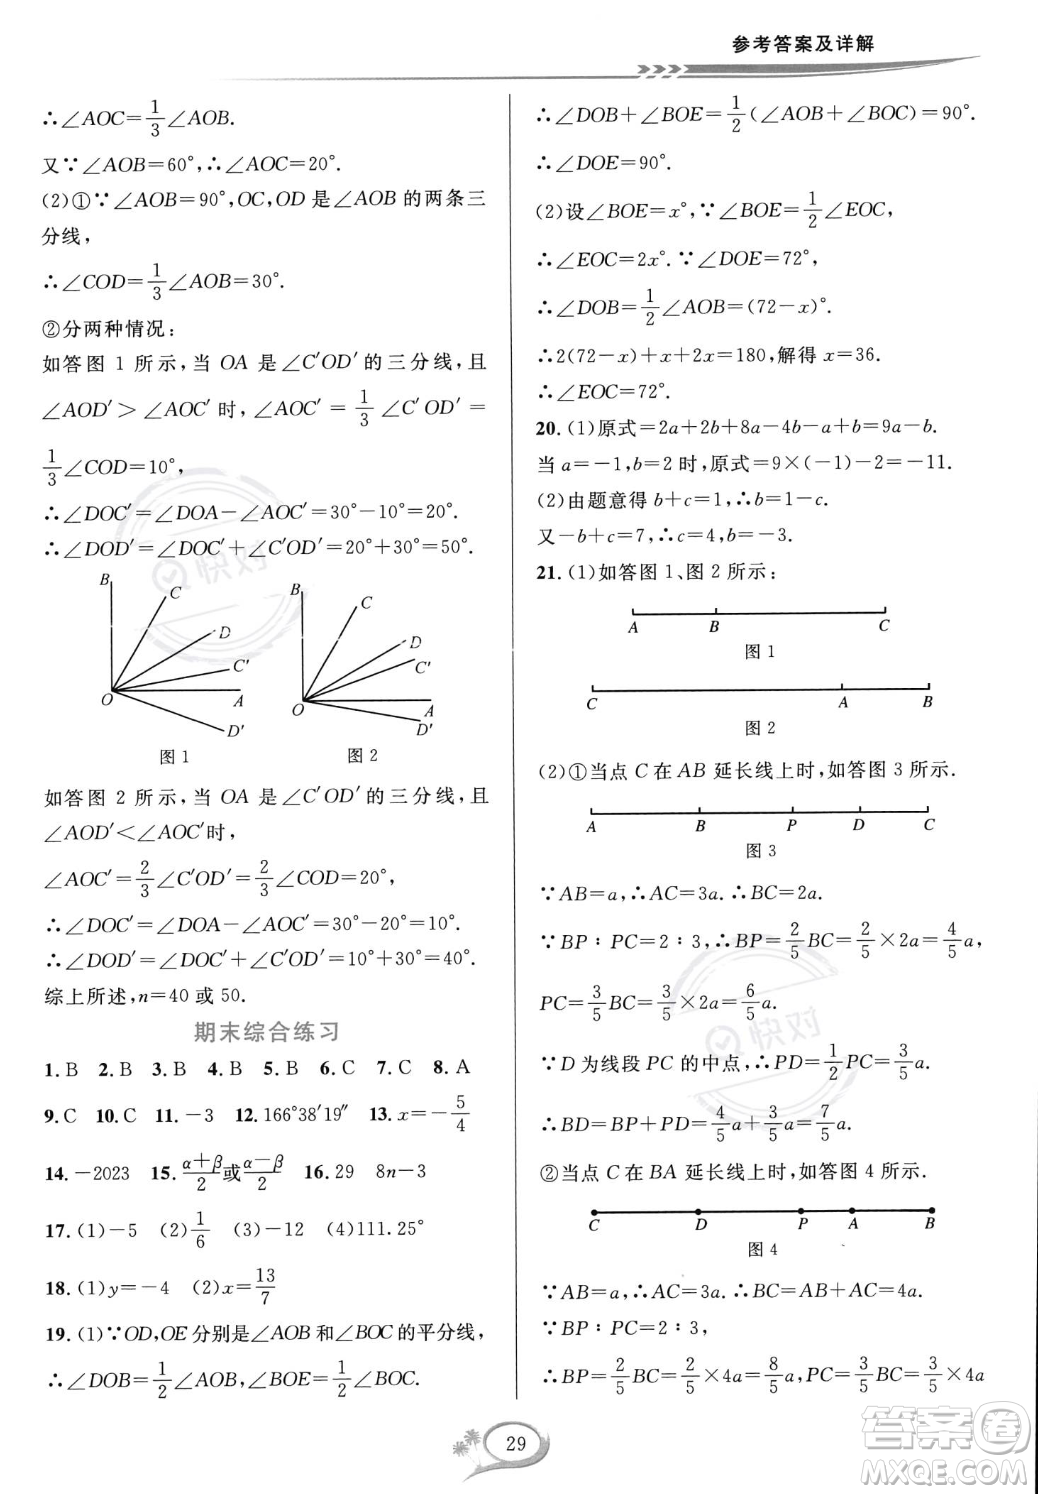 参考答案及详解
∴∠AOC=1/3∠AOB.
又∵∠AOB=60°,∴∠AOC=20°.
(2)①∵∠AOB=90°,OC,OD 是∠AOB 的两条三
分线,
∴∠COD=1/3∠AOB=30°.
②分两种情况:
如答图 1 所示,当 OA 是∠C′OD′的三分线,且
∠AOD′>∠AOC′时,∠AOC′=1/3∠C′OD′=
1/3∠COD=10°,
∴∠DOC′=∠DOA-∠AOC′=30°-10°=20°.
∴∠DOD′=∠DOC′+∠C′OD′=20°+30°=50°.
B C D C′ O A D′
图 1
B C D C′ O A D′
图 2
如答图 2 所示,当 OA 是∠C′OD′的三分线,且
∠AOD′<∠AOC′时,
∠AOC′=2/3∠C′OD′=2/3∠COD=20°,
∴∠DOC′=∠DOA-∠AOC′=30°-20°=10°.
∴∠DOD′=∠DOC′+∠C′OD′=10°+30°=40°.
综上所述,n=40 或 50.
期末综合练习
1.B 2.B 3.B 4.B 5.B 6.C 7.C 8.A
9.C 10.C 11.-3 12.166°38′19″ 13.x=-5/4
14.-2023 15.α+β/2或α-β/2 16.29 8n-3
17.(1)-5 (2)1/6 (3)-12 (4)111.25°
18.(1)y=-4 (2)x=13/7
19.(1)∵OD,OE 分别是∠AOB 和∠BOC 的平分线,
∴∠DOB=1/2∠AOB,∠BOE=1/2∠BOC.
∴∠DOB+∠BOE=1/2(∠AOB+∠BOC)=90°.
∴∠DOE=90°.
(2)设∠BOE=x°,∵∠BOE=1/2∠EOC,
∴∠EOC=2x°.∵∠DOE=72°,
∴∠DOB=1/2∠AOB=(72-x)°.
∴2(72-x)+x+2x=180,解得 x=36.
∴∠EOC=72°.
20.(1)原式=2a+2b+8a-4b-a+b=9a-b.
当 a=-1,b=2 时,原式=9×(-1)-2=-11.
(2)由题意得 b+c=1,∴b=1-c.
又-b+c=7,∴c=4.∴b=-3.
21.(1)如答图 1、图 2 所示:
A B C
图 1
C A B
图 2
(2)①当点 C 在 AB 延长线上时,如答图 3 所示.
A B P D C
图 3
∵AB=a,∴AC=3a.∴BC=2a.
∵BP∶PC=2∶3,∴BP=2/5BC=2/5×2a=4/5a,
PC=3/5BC=3/5×2a=6/5a.
∵D 为线段 PC 的中点,∴PD=1/2PC=3/5a.
∴BD=BP+PD=4/5a+3/5a=7/5a.
②当点 C 在 BA 延长线上时,如答图 4 所示.
C D P A B
图 4
∵AB=a,∴AC=3a.∴BC=AB+AC=4a.
∵BP∶PC=2∶3,
∴BP=2/5BC=2/5×4a=8/5a,PC=3/5BC=3/5×4a
29
快对
快对
答案圈
MXQE.COM